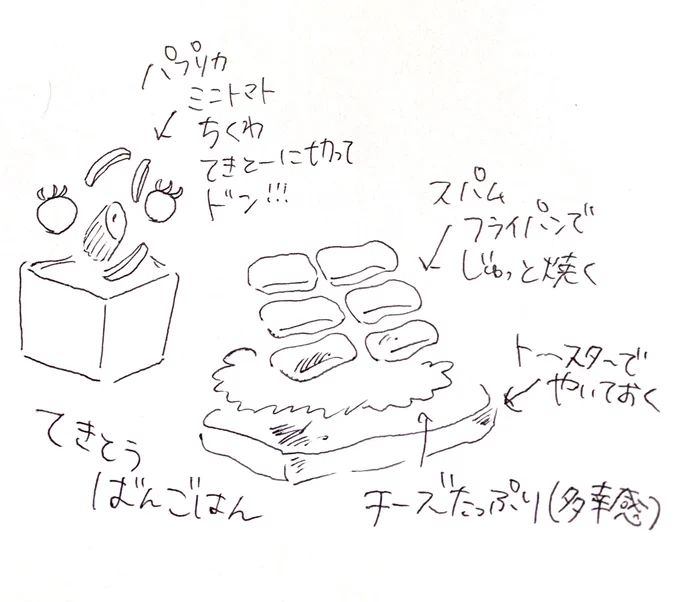 パプリカ
ミニトマト
ちくわ
てきとーに切って
ドン!!!
スパム
フライパンで
じゅっと焼く
トースターで
やいておく
てきとう
ばんごはん
チーズたっぷり(多幸感)